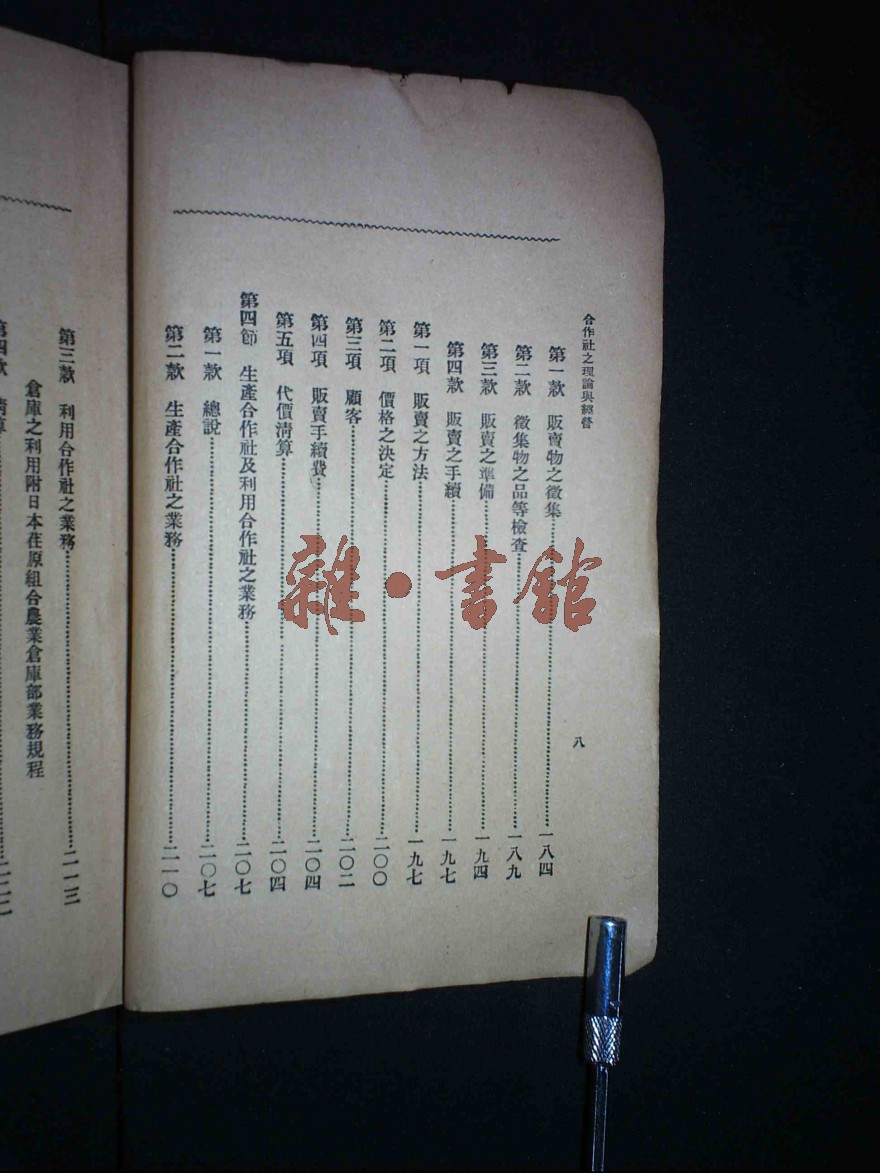 合作社之理論與經營
八
第一款 販賣物之徵集……一八四
第二款 徵集物之品等檢查……一八九
第三款 販賣之準備……一九四
第四款 販賣之手續……一九七
第一項 販賣之方法……一九七
第二項 價格之決定……二〇〇
第三項 顧客……二〇二
第四項 販賣手續費……二〇四
第五項 代價淸算……二〇四
第四節 生產合作社及利用合作社之業務……二〇七
第一款 總說……二〇七
第二款 生產合作社之業務……二一〇
第三款 利用合作社之業務……二一三
倉庫之利用附日本荏原組合農業倉庫部業務規程
雜·書館